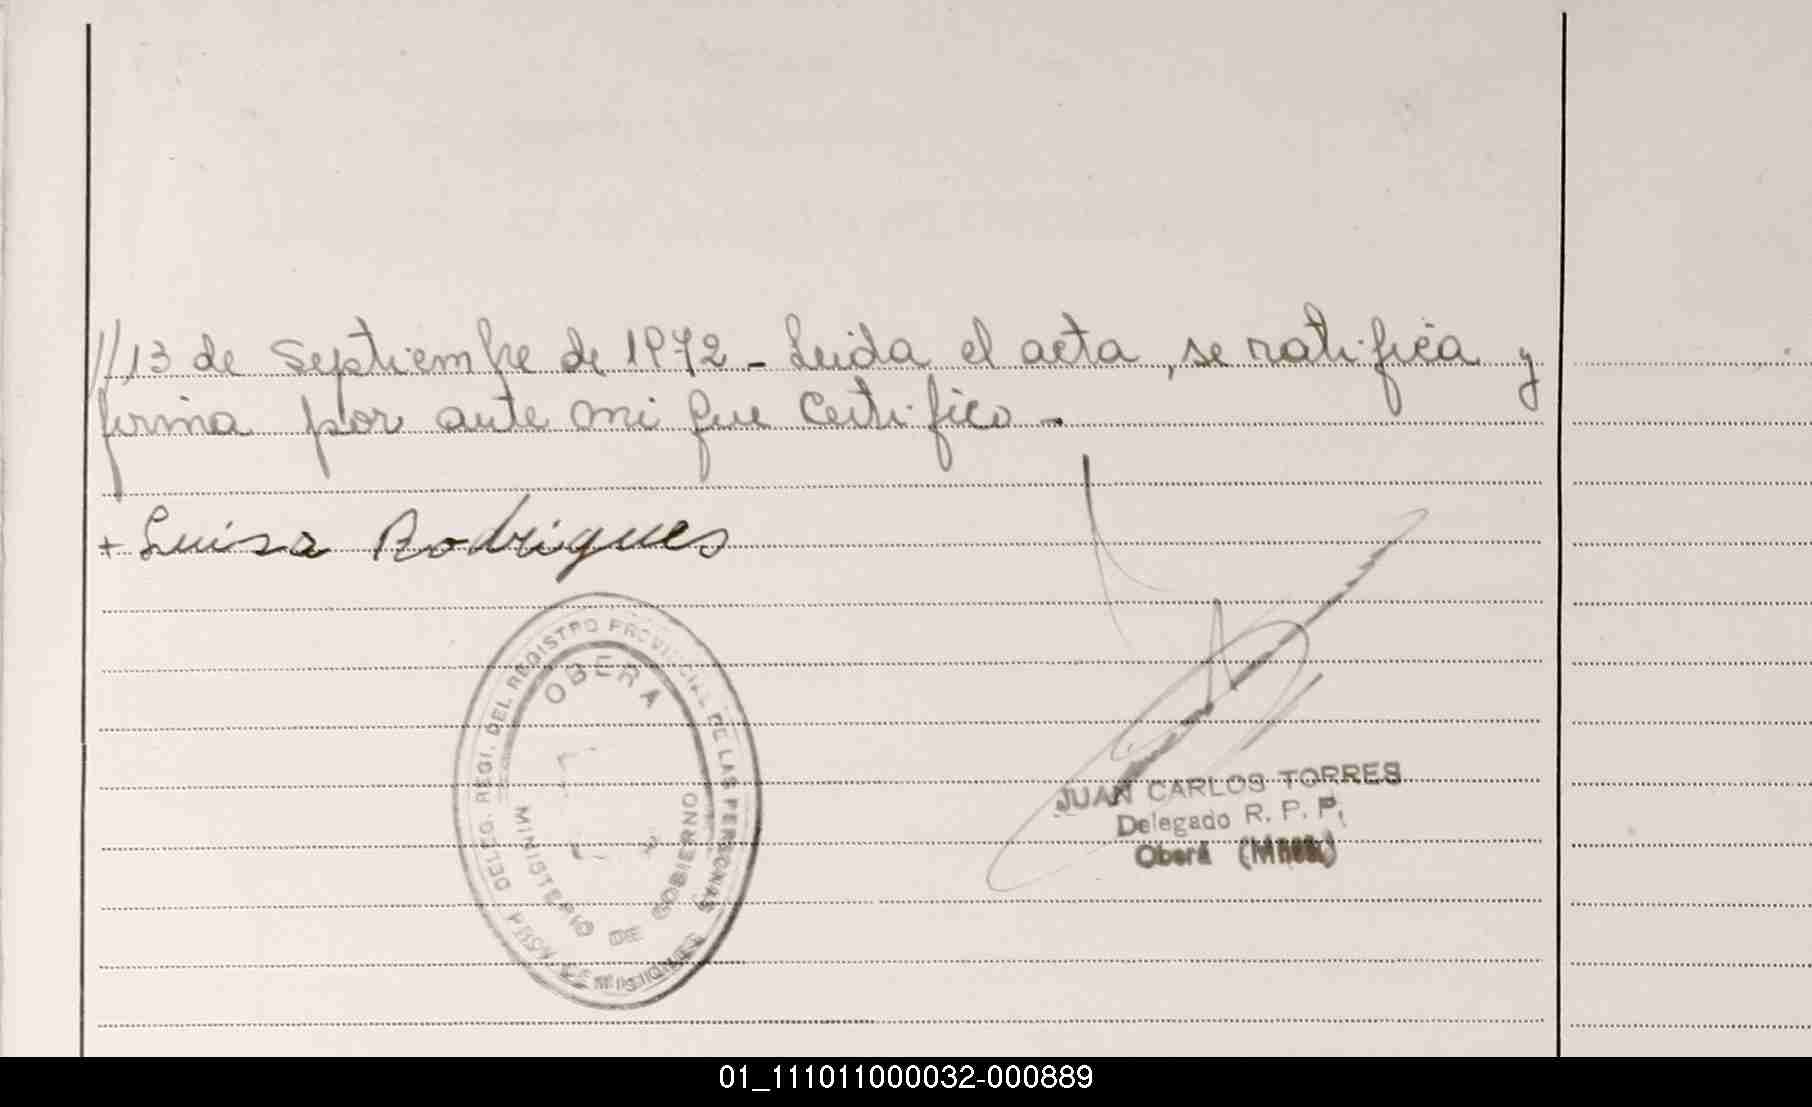 //13 de Septiembre de 1972 - Leida el acta, se ratifica y
firma por ante mi que Certifico -
+ Luisa Rodrigues
DELEG. REGI. DEL REGISTRO PROVINCIAL DE LAS PERSONAS
OBERA
MINISTERIO DE GOBIERNO
DE MISIONES
JUAN CARLOS TORRES
Delegado R. P. P.
Oberá (Mnes.)
01_111011000032-000889